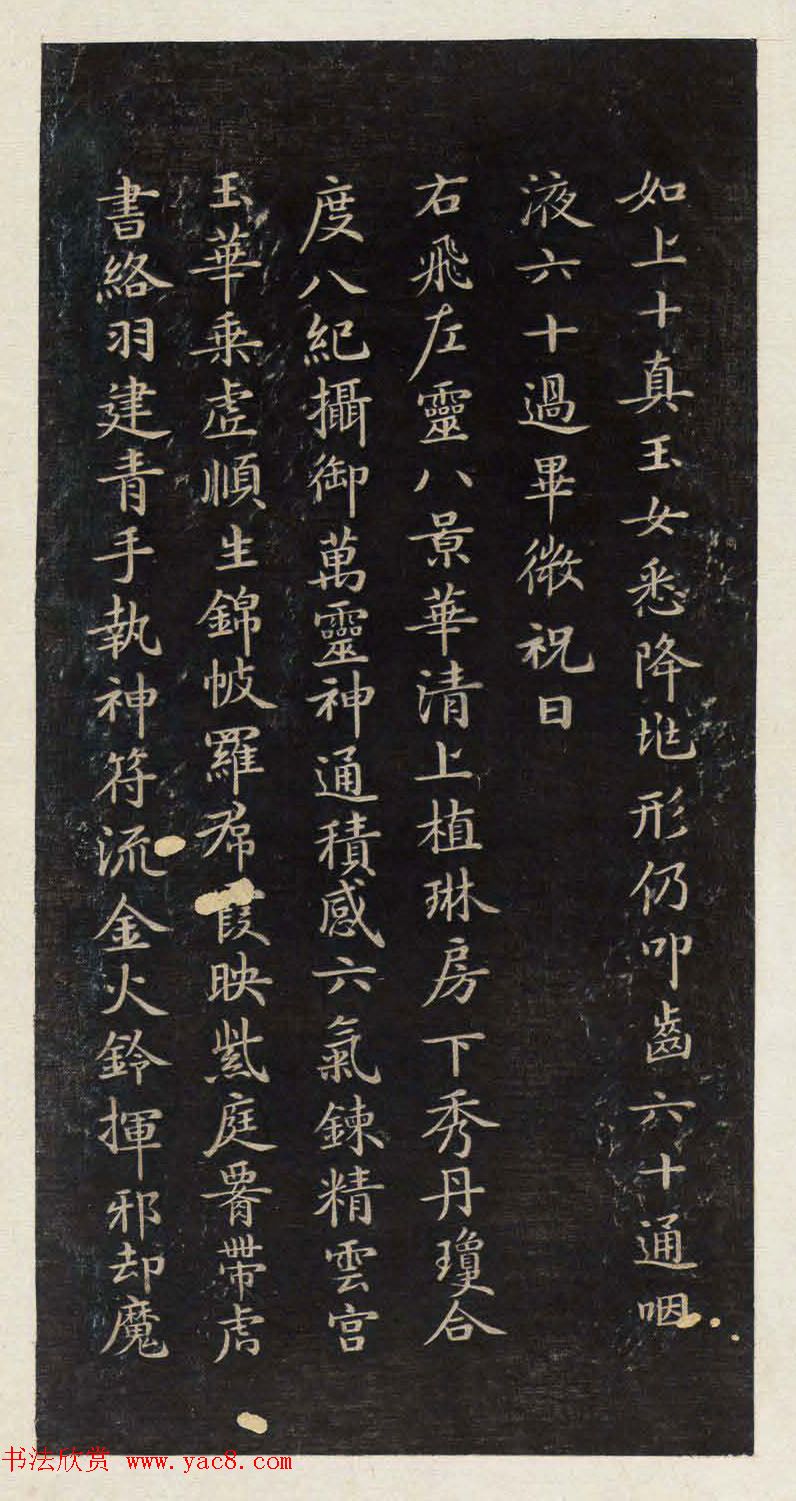 如上十真玉女悉降兆形仍叩齒六十通咽
液六十過畢微祝曰
右飛左靈八景華清上植琳房下秀丹瓊合
度八紀攝御萬靈神通積感六氣鍊精雲宮
玉華乘虛順生錦帔羅帬霞映紫庭腰帶虎
書絡羽建青手執神符流金火鈴揮邪却魔
书法欣赏 www.yac8.com